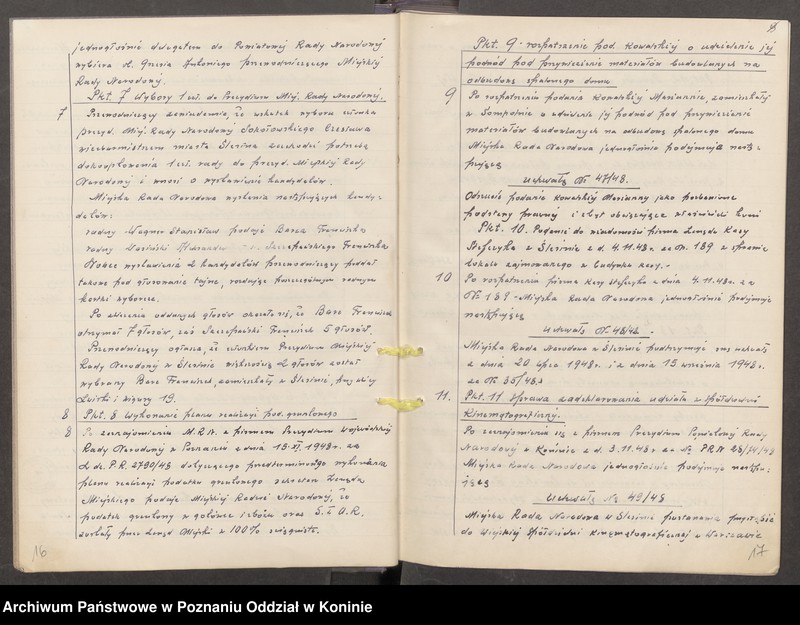 jednogłośnie delegatem do Powiatowej Rady Narodowej
wybiera ob. Antoniego przewodniczącego Miejskiej
Rady Narodowej.
Pkt. 7 Wybory 1 czł. do Prezydium Miej. Rady Narodowej.
7 Przewodniczący zawiadamia, że wskutek wyboru członka
prezyd. Miej. Rady Narodowej Sokołowskiego Czesława
wiceburmistrzem miasta Ślesina zachodzi potrzeba
dokooptowania 1 czł. rady do prezyd. Miejskiej Rady
Narodowej i wnosi o wystawienie kandydatów.
Miejska Rada Narodowa wystawia następujących kandy-
datów:
radny Wagner Stanisław podaje Barca Franciszka
radny Szczepańskiego Franciszka
Wobec wystawienia 2 kandydatów przewodniczący poddał
takowe pod głosowanie tajne, rozdając poszczególnym radnym
kartki wyborcze.
Po obliczeniu oddanych głosów okazało się, że Barc Franciszek
otrzymał 7 głosów, zaś Szczepański Franciszek 5 głosów.
Przewodniczący ogłasza, że członkiem Prezydium Miejskiej
Rady Narodowej w Ślesinie większością 2 głosów został
wybrany Barc Franciszek, zamieszkały w Ślesinie, przy ulicy
Żwirki i Wigury 19.
8 Pkt. 8 Wykonanie planu realizacji pod. gruntowego
8 Po zaznajomieniu M.R.N. z pismem Prezydium Wojewódzkiej
Rady Narodowej w Poznaniu z dnia 1948 r. za
L. dz. P.R. 2790/48 dotyczącego przedterminowego wykonania
planu realizacji podatku gruntowego sekretarz Zarządu
Miejskiego podaje Miejskiej Radzie Narodowej, że
podatek gruntowy w gotówce i zbożu oraz
zostały przez Zarząd Miejski w 100% ściągnięte.
16
8
Pkt. 9 - rozpatrzenie pod. Kowalskiej o udzielenie jej
podwód pod przywiezienie materiałów budowlanych na
odbudowę spalonego domu
9 Po rozpatrzeniu podania Kowalskiej Marianny, zamieszkałej
w Sompolnie o udzielenie jej podwód pod przywiezienie
materiałów budowlanych na odbudowę spalonego domu
Miejska Rada Narodowa jednogłośnie podejmuje nastę-
pującą
Uchwałę Nr 47/48.
Odrzucić podanie Kowalskiej Marianny jako pozbawione
podstawy prawnej i zbyt obciążające właścicieli koni
Pkt. 10. Podanie do wiadomości pisma Zarządu Kasy
Stefczyka w Ślesinie z d. 4.11.48 r. za Nr. 189 w sprawie
lokalu zajmowanego w budynku kasy.-
10 Po rozpatrzeniu pisma Kasy Stefczyka z dnia 4.11.48 r. za
Nr 189 - Miejska Rada Narodowa jednogłośnie podejmuje
następującą
Uchwałę Nr. 48/48.-
Miejska Rada Narodowa w Ślesinie podtrzymuje swą uchwałę
z dnia 20 lipca 1948 r. i z dnia 15 września 1948 r.
za Nr 35/48.
11. Pkt. 11 Sprawa zadeklarowania udziału w Spółdzielni
Kinematograficznej.
Po zaznajomieniu się z pismem Prezydium Powiatowej Rady
Narodowej w Koninie z d. 3.11.48 r za Nr PRN
Miejska Rada Narodowa jednogłośnie podejmuje nastepu-
jącą
Uchwałę Nr 49/48
Miejska Rada Narodowa w Ślesinie postanawia przystąpić
do Wiejskiej Spółdzielni Kinematograficznej w Warszawie
17
Archiwum Państwowe w Poznaniu Oddział w Koninie